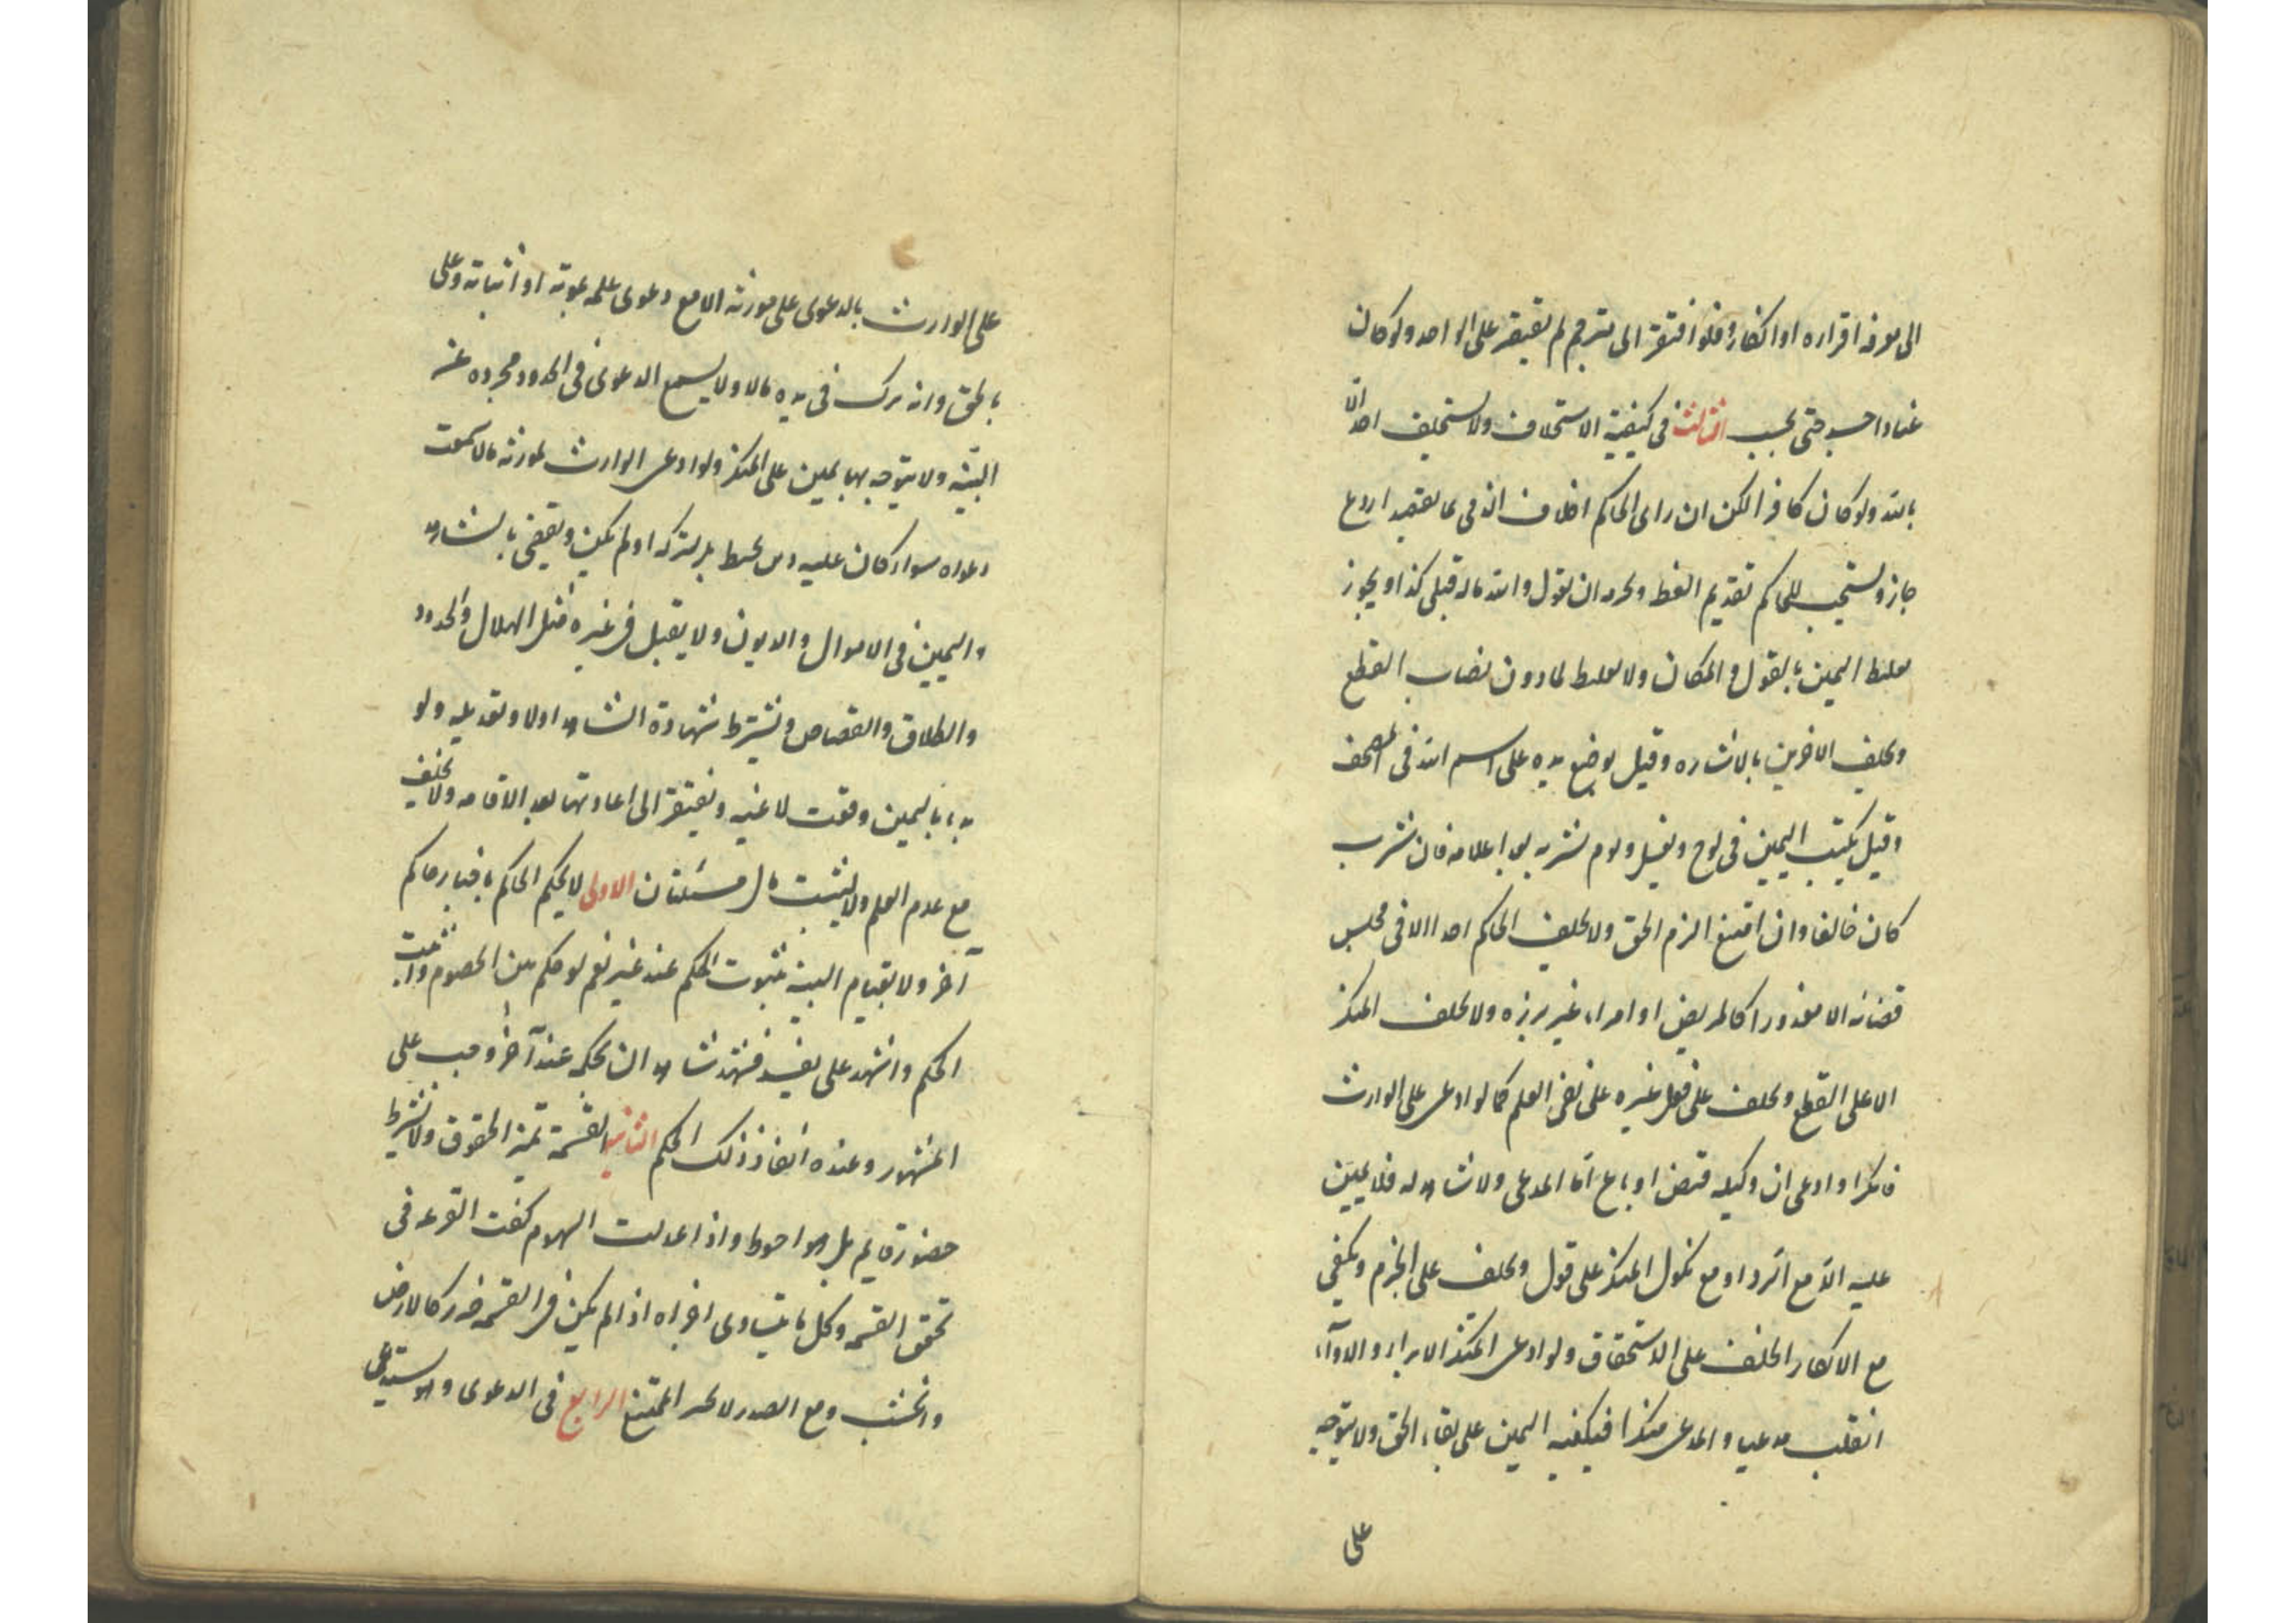 الى معرفة اقراره او انكاره فلو افتقر الى مترجم لم يقتصر على الواحد ولو كان
عنادا حبس حتى يجيب الثالث فى كيفية الاستحلاف ولا يستحلف احد الا
بالله ولو كان كافرا لكن ان راى الحاكم احلاف الذمى بما يعتقده اردع
جاز ويستحب للحاكم تقديم العظة ويجزيه ان يقول والله ماله قبلى كذا ويجوز
تغليظ اليمين بالقول والمكان ولا تغليظ لما دون نصاب القطع
ويحلف الاخرس بالاشارة وقيل يوضع يده على اسم الله فى المصحف
وقيل يكتب اليمين فى لوح ويغسل ويؤمر بشربه بعد اعلامه فان شرب
كان حالفا وان امتنع الزم الحق ولا يحلف الحاكم احدا الا فى مجلس
قضائه الا معذورا كالمريض او امراة غير برزة ولا يحلف المنكر
الا على القطع ويحلف على فعل غيره على نفى العلم كما لو ادعى على الوارث
فانكر او ادعى ان وكيله قبض او باع اما المدعى ولا شاهد له فلا يمين
عليه الا مع الرد او مع نكول المنكر على قول ويحلف على الجزم ويكفى
مع الانكار الحلف على الاستحقاق ولو ادعى المنكر الابراء والاداء
انقلب مدعيا والمدعى منكرا فيكفيه اليمين على بقاء الحق ولا يتوجه
على
على الوارث بالدعوى على مورثه الا مع دعوى علمه بموته او اثباته وعلمه
بالحق وانه ترك فى يده مالا ولا يسمع الدعوى فى الحدود مجردة عن
البينة ولا يتوجه بها يمين على المنكر ولو ادعى الوارث لمورثه مالا سمعت
دعواه سواء كان عليه دين يحيط بالتركة او لم يكن ويقضى بالشاهد
واليمين فى الاموال والديون ولا يقبل فى غيره مثل الهلال والحدود
والطلاق والقصاص ويشترط شهادة الشاهد اولا وتعديله ولو
بدا باليمين وقعت لاغية ويفتقر الى اعادتها بعد الاقامة ولا يحلف
مع عدم العلم ولا يثبت مال مسئلتان الاولى لا يحكم الحاكم باخبار حاكم
آخر ولا بقيام البينة بثبوت الحكم عند غيره نعم لو حكم بين الخصوم واثبت
الحكم واشهد على نفسه فشهد شاهدان بحكمه عند آخر وجب على
المشهور عنده انفاذ ذلك الحكم الثانية القسمة تميز الحقوق ولا يشترط
حضور قاسم بل هو احوط واذا عدلت السهام كفت القرعة فى
تحقق القسمة وكل ما يتساوى اجزاه اذا لم يكن فى القسمة ضرر كالارض
والخشب ومع الضرر لا يجبر الممتنع الرابع فى الدعوى وهو يستدعى